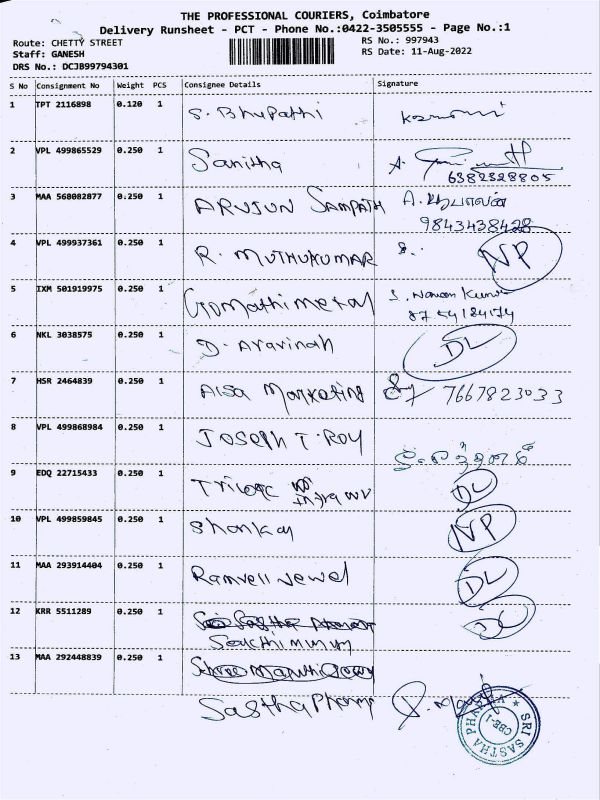 THE PROFESSIONAL COURIERS, Coimbatore
Delivery Runsheet - PCT - Phone No.:0422-3505555 - Page No.:1
Route: CHETTY STREET
Staff: GANESH
DRS No.: DCJB99794301
RS No.: 997943
RS Date: 11-Aug-2022
S No Consignment No Weight PCS Consignee Details Signature
1 TPT 2116898 0.120 1 S. Bhupathi
2 VPL 499865529 0.250 1 Sanitha A.
6382328805
3 MAA 568082877 0.250 1 ARUJUN SAMPATH A.
9843438428
4 VPL 499937361 0.250 1 R. MUTHUKUMAR NP
5 IXM 501919975 0.250 1 Gomathi metal S. Naveen Kumar
8754184174
6 NKL 3038575 0.250 1 D. Aravinah DL
7 HSR 2464839 0.250 1 Aisa Marketing 7667823033
8 VPL 499868984 0.250 1 JOSEPH T. ROY
9 EDQ 22715433 0.250 1 DL
10 VPL 499859845 0.250 1 Shankar NP
11 MAA 293914404 0.250 1 Ramvell Jewel DL
12 KRR 5511289 0.250 1 DL
Sakthi murugn
13 MAA 292448839 0.250 1
Sastha Pharm
SRI SASTHA PHARMA
CBE-1